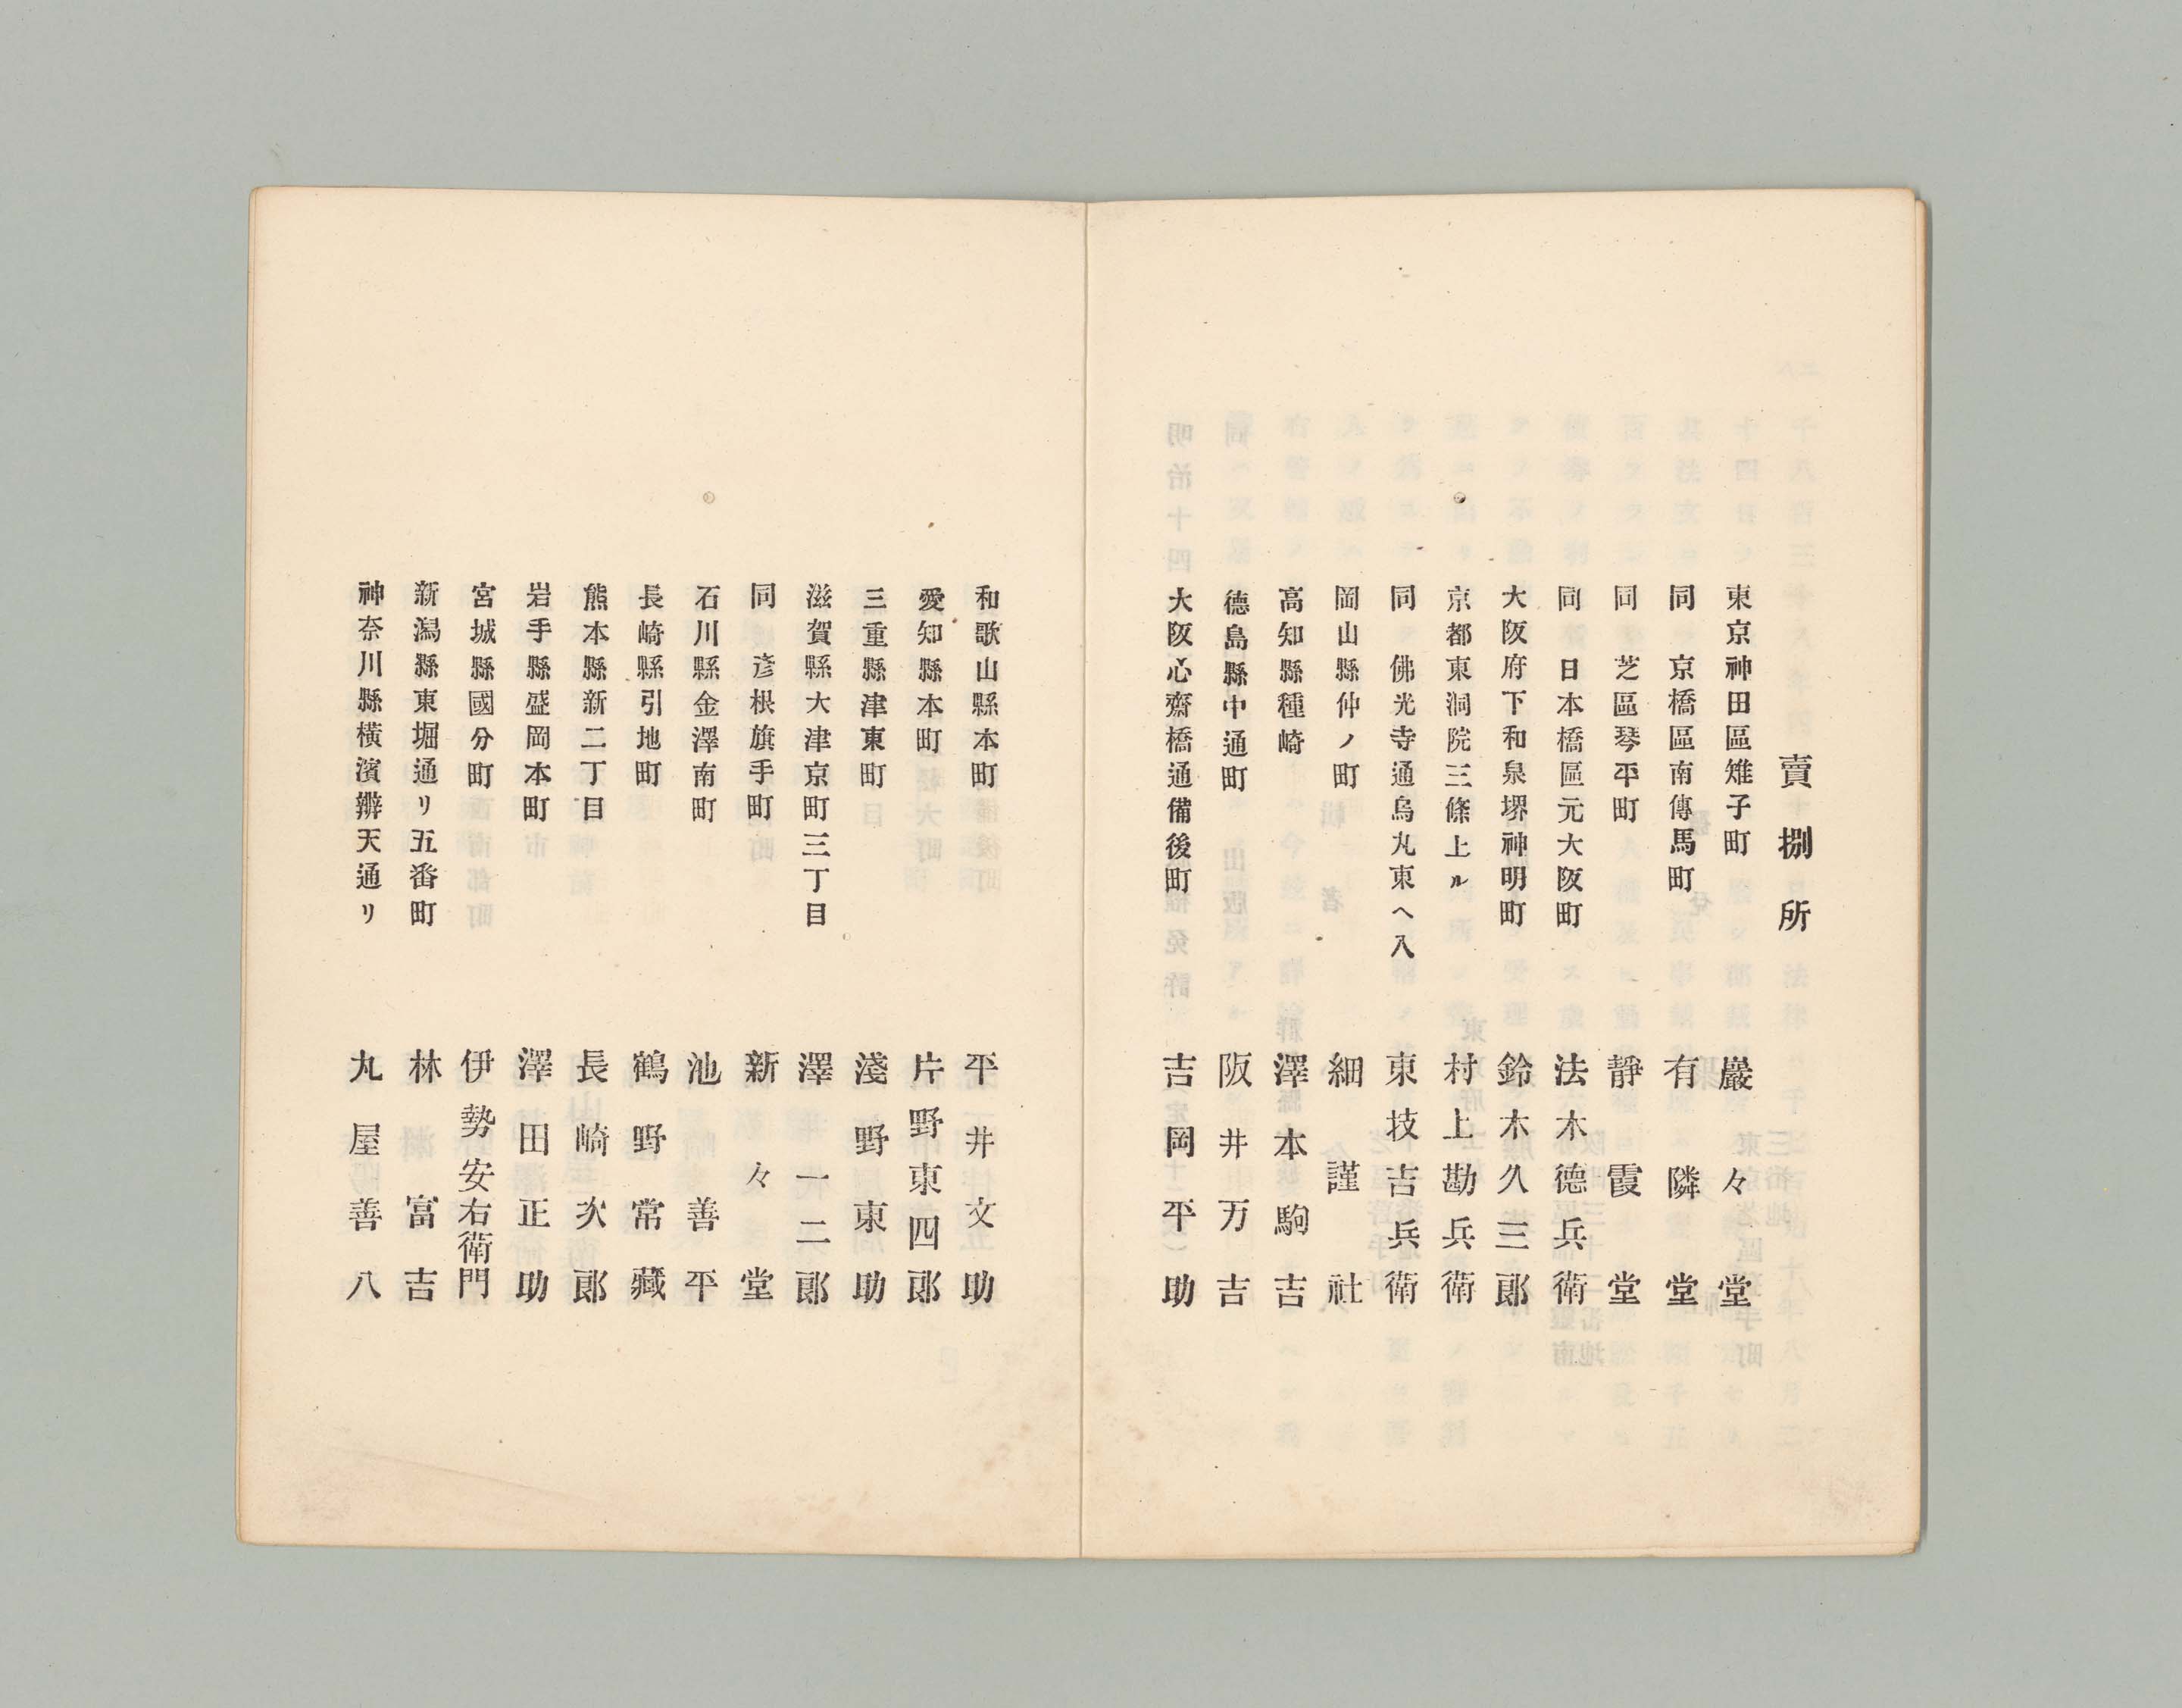 賣捌所
東京神田區雉子町　巖々堂
同　京橋區南傳馬町　有隣堂
同　芝區琴平町　靜霞堂
同　日本橋區元大阪町　法木德兵衛
大阪府下和泉堺神明町　鈴木久三郎
京都東洞院三條上ル　村上勘兵衛
同　佛光寺通烏丸東へ入　東技吉兵衛
岡山縣仲ノ町　細謹社
高知縣種崎　澤本駒吉
德島縣中通町　阪井万吉
大阪心齋橋通備後町　吉岡平助
和歌山縣本町　平井文助
愛知縣本町　片野東四郎
三重縣津東町　淺野東助
滋賀縣大津京町三丁目　澤一二郎
同　彦根旗手町　新々堂
石川縣金澤南町　池善平
長崎縣引地町　鶴野常藏
熊本縣新二丁目　長崎次郎
岩手縣盛岡本町　澤田正助
宮城縣國分町　伊勢安右衛門
新潟縣東堀通リ五番町　林富吉
神奈川縣横濱辨天通リ　丸屋善八